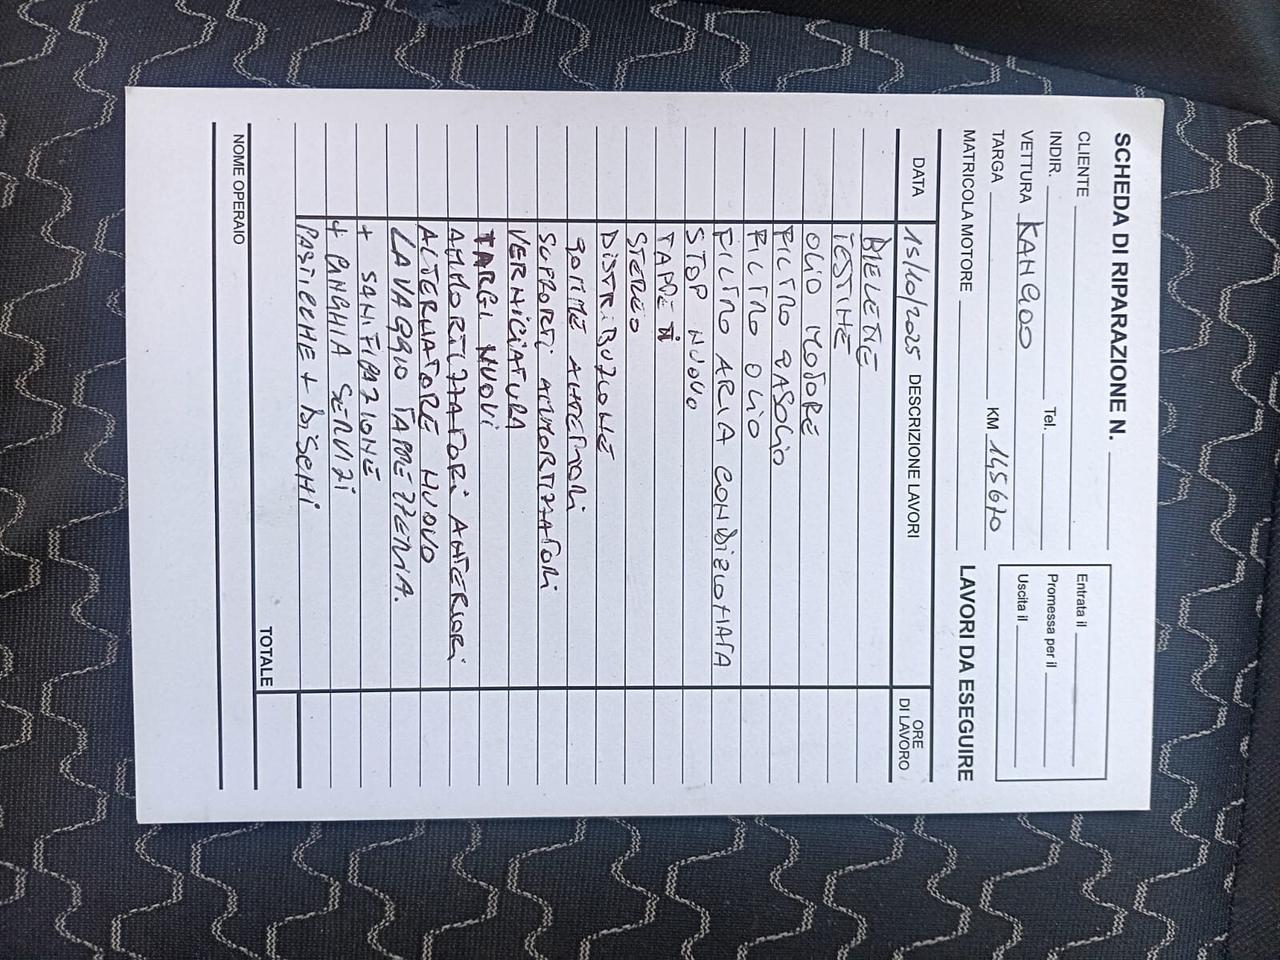 SCHEDA DI RIPARAZIONE N.
CLIENTE
INDIR. Tel.
VETTURA KANGOO
TARGA KM 145670
MATRICOLA MOTORE
Entrata il
Promessa per il
Uscita il
LAVORI DA ESEGUIRE
DATA DESCRIZIONE LAVORI ORE DI LAVORO
15/10/2025
BIELETTE
TESTINE
OLIO MOTORE
FILTRO GASOLIO
FILTRO OLIO
FILTRO ARIA CONDIZIONATA
STOP NUOVO
TAPPETI
STEREO
DISTRIBUZIONE
GOMME ANTERIORI
SUPPORTI AMMORTIZZATORI
VERNICIATURA
TARGI NUOVI
AMMORTIZZATORI ANTERIORI
ALTERNATORE NUOVO
LAVAGGIO TAPPEZZERIA.
+ SANITIZAZIONE
+ CINGHIA SERVIZI
PASTICCHE + DISCHI
TOTALE
NOME OPERAIO